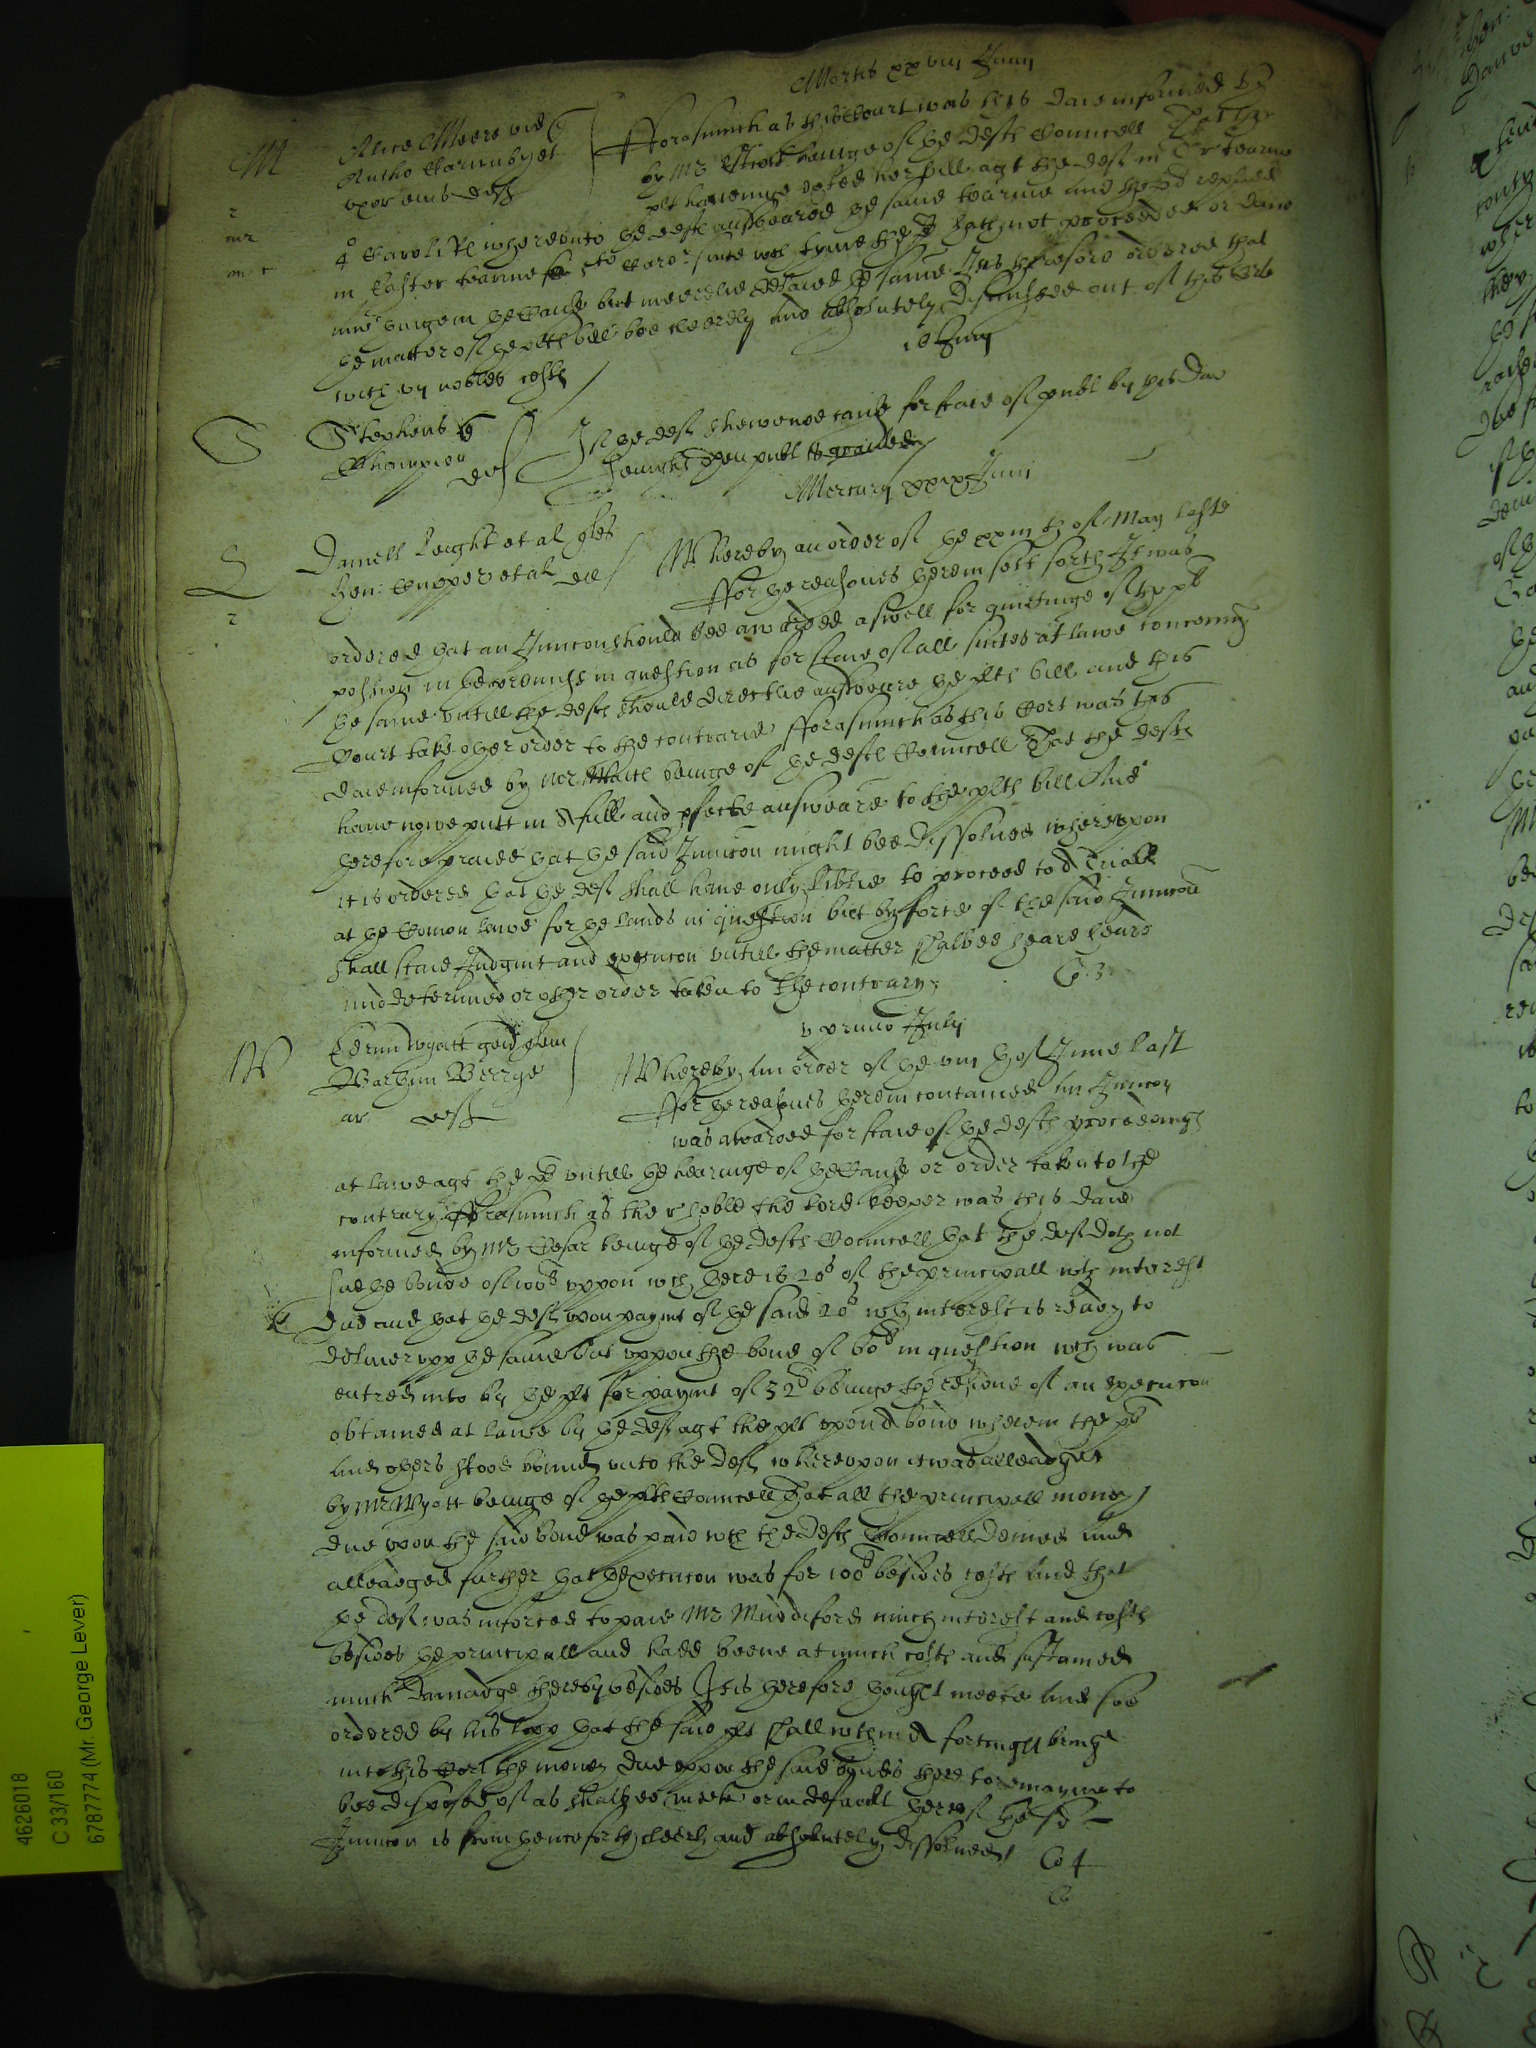 Martis xxviij Junij
M
Alice Moore vid
Antho: et
vxor eius deft
Fforasmuch as this Court was this daie informed
by Mr beinge of the defts Councell That the
plt haveinge her bill agt the def in tearme
4o Caroli R whereunto the defts answeared the same tearme and the replied
in Easter tearme 5to Caro: since wch tyme the hath not proceeded or done
any thinge in the Cause but meerelie the same It is therefore ordered that
the matter of the plts bill bee cleerely and absolutely dismissed out of this Court
with nobles costs
S
Stephens
Champion
def
If the deft shewe noe cause for staie of publ by this daie
sevenight then publ is graunted
Mercurij xxix Junij
L
Daniell Leight et al plts
Hen: Cupper et al def
Whereby an order of the xxiijth of May laste
Ffor the reasones therein sett forth It was
ordered that an Iniuncon should bee awarded aswell for quietinge of the plts
possession in the premisses in question as for staie of all suites at lawe concerning
the same untill the defts should directlie answeare the plts bill and this
Court take other order to the contrarie Fforasmuch as this Cort was this
daie informed by Mr beinge of the defts Councell That the defts
have nowe putt in a full and pfecte answeare to the plts bill And
therefore praied that the said Iniuncon might bee dissolved whereupon
it is ordered that the def shall have only libtie to proceed to a triall
at the Comon lawe for the lands in question but by force of the said Iniuncon
shall staie Judgmt and execucon untill the matter shalbee heare heard
and determined or other order taken to the contrary
primo July
W
Edmund Wyatt gen plt
ar deft
Whereby an order of the viijth of June last
Ffor the reasones therein contained an Iniuncon
was awarded for staie of the defts proceedings
at lawe agt the plt untill the hearinge of the Cause or order taken to the
contrary Fforasmuch as the r: hoble the lord keeper was this daie
informed by Mr Cesar beinge of the defts Councell that the def doth not
sue the bond of uppon wch there is 20l of the principall wth interest
due and that the deft upon paymt of the said 20l wth interest is ready to
deliver upp the same but uppon the bond of 60l in question wch was
entred into by the plt for paymt of 32l beinge the residue of an execucon
obtained at lawe by the deft agt the plt upon a bond wherein the plt
and others stood bound unto the deft whereupon it was alleadged
by Mr Wyatt beinge of the plts Councell that all the principall money
due upon the said bond was paid wch the defts Councell denied and
alleadged further that the execucon was for 100l besides costs and that
the deft was inforced to paie Mr Muddiford much interest and costs
besides the principall and hadd beene at much costs and sustained
much damadge thereby besides It is therefore thought meete and soe
ordered by his lopp that the said plt shall within a fortnight bringe
into this Cort the money due uppon the said bonds there to remayne to
bee disposed of as shalbee meete or in default thereof the sd
Iniuncon is from henceforth cleerly and absolutely dissolved
4626018
C 33/160
6787774 (Mr. George Lever)